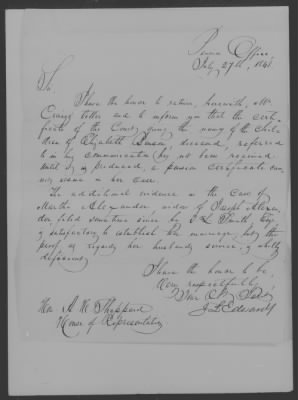 Pension Office
July 27th, 1841
Sir,
I have the honor to return, herewith, Mr
letter and to inform you that the certi-
ficate of the Court, giving the names of the Chil-
dren of Elizabeth deceased, referred
to in his communication has not been received.
Until it is produced, a pension certificate can
not issue in her case.
The additional evidence in the case of
Martha Alexander, widow of Joseph Alexan-
der filed sometime since by Esq.
is satisfactory to establish the marriage, but the
proof, as regards her husband's services, is wholly
deficient.
I have the honor to be,
Very respectfully,
Your Obt. Servt.
J L Edwards
Hon. A. H. Shepperd
House of Representatives